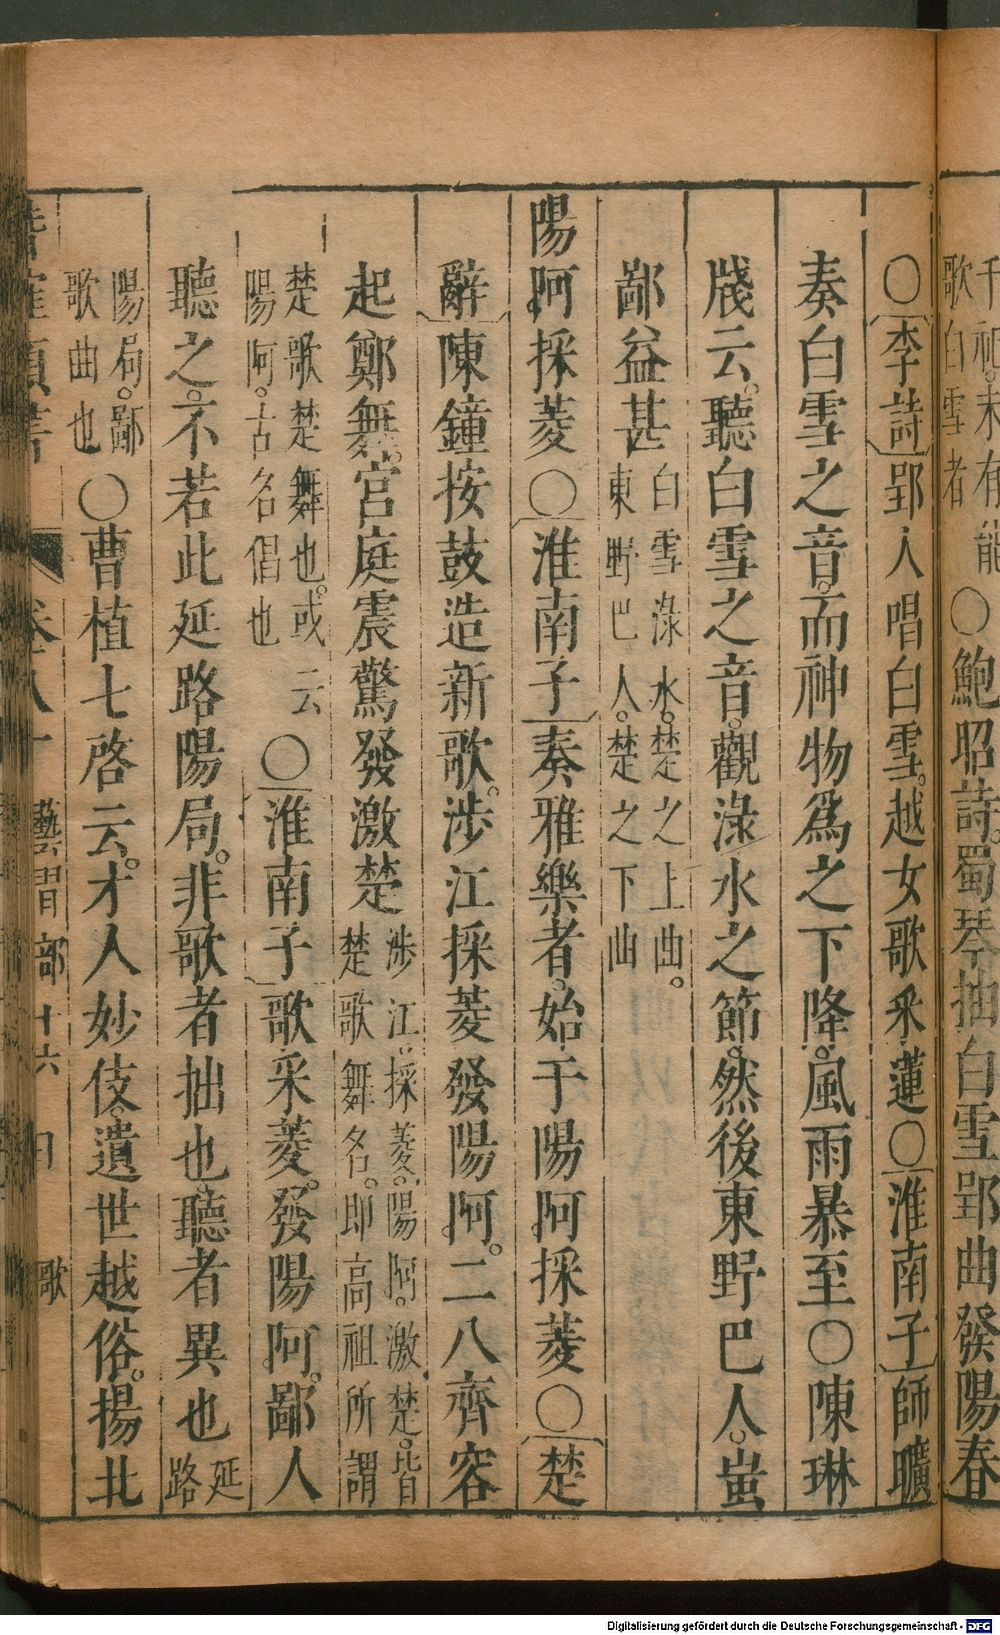 千祀。未有能
歌白雪者
○鮑昭詩。蜀琴抽白雪郢曲發陽春
○李詩郢人唱白雪。越女歌采蓮○淮南子師曠
奏白雪之音。而神物爲之下降。風雨暴至○陳琳
牋云。聽白雪之音。觀淥水之節。然後東野巴人。蚩
鄙益甚
白雪淥水。楚之上曲。
東野巴人。楚之下曲
陽阿採菱○淮南子奏雅樂者。始于陽阿採菱○楚
辭陳鐘按鼓造新歌。涉江採菱發陽阿。二八齊容
起鄭舞。宮庭震驚發激楚
涉江。採菱。陽阿。激楚。皆
楚歌舞名。即高祖所謂
楚歌楚舞也。或云
陽阿。古名倡也
○淮南子歌采菱。發陽阿。鄙人
聽之。不若此延路陽局。非歌者拙也。聽者異也
延
路
陽局。鄙
歌曲也
○曹植七啓云。才人妙伎。遺世越俗。揚北
類書
卷八十
藝習部十六
歌
Digitalisierung gefördert durch die Deutsche Forschungsgemeinschaft - DFG